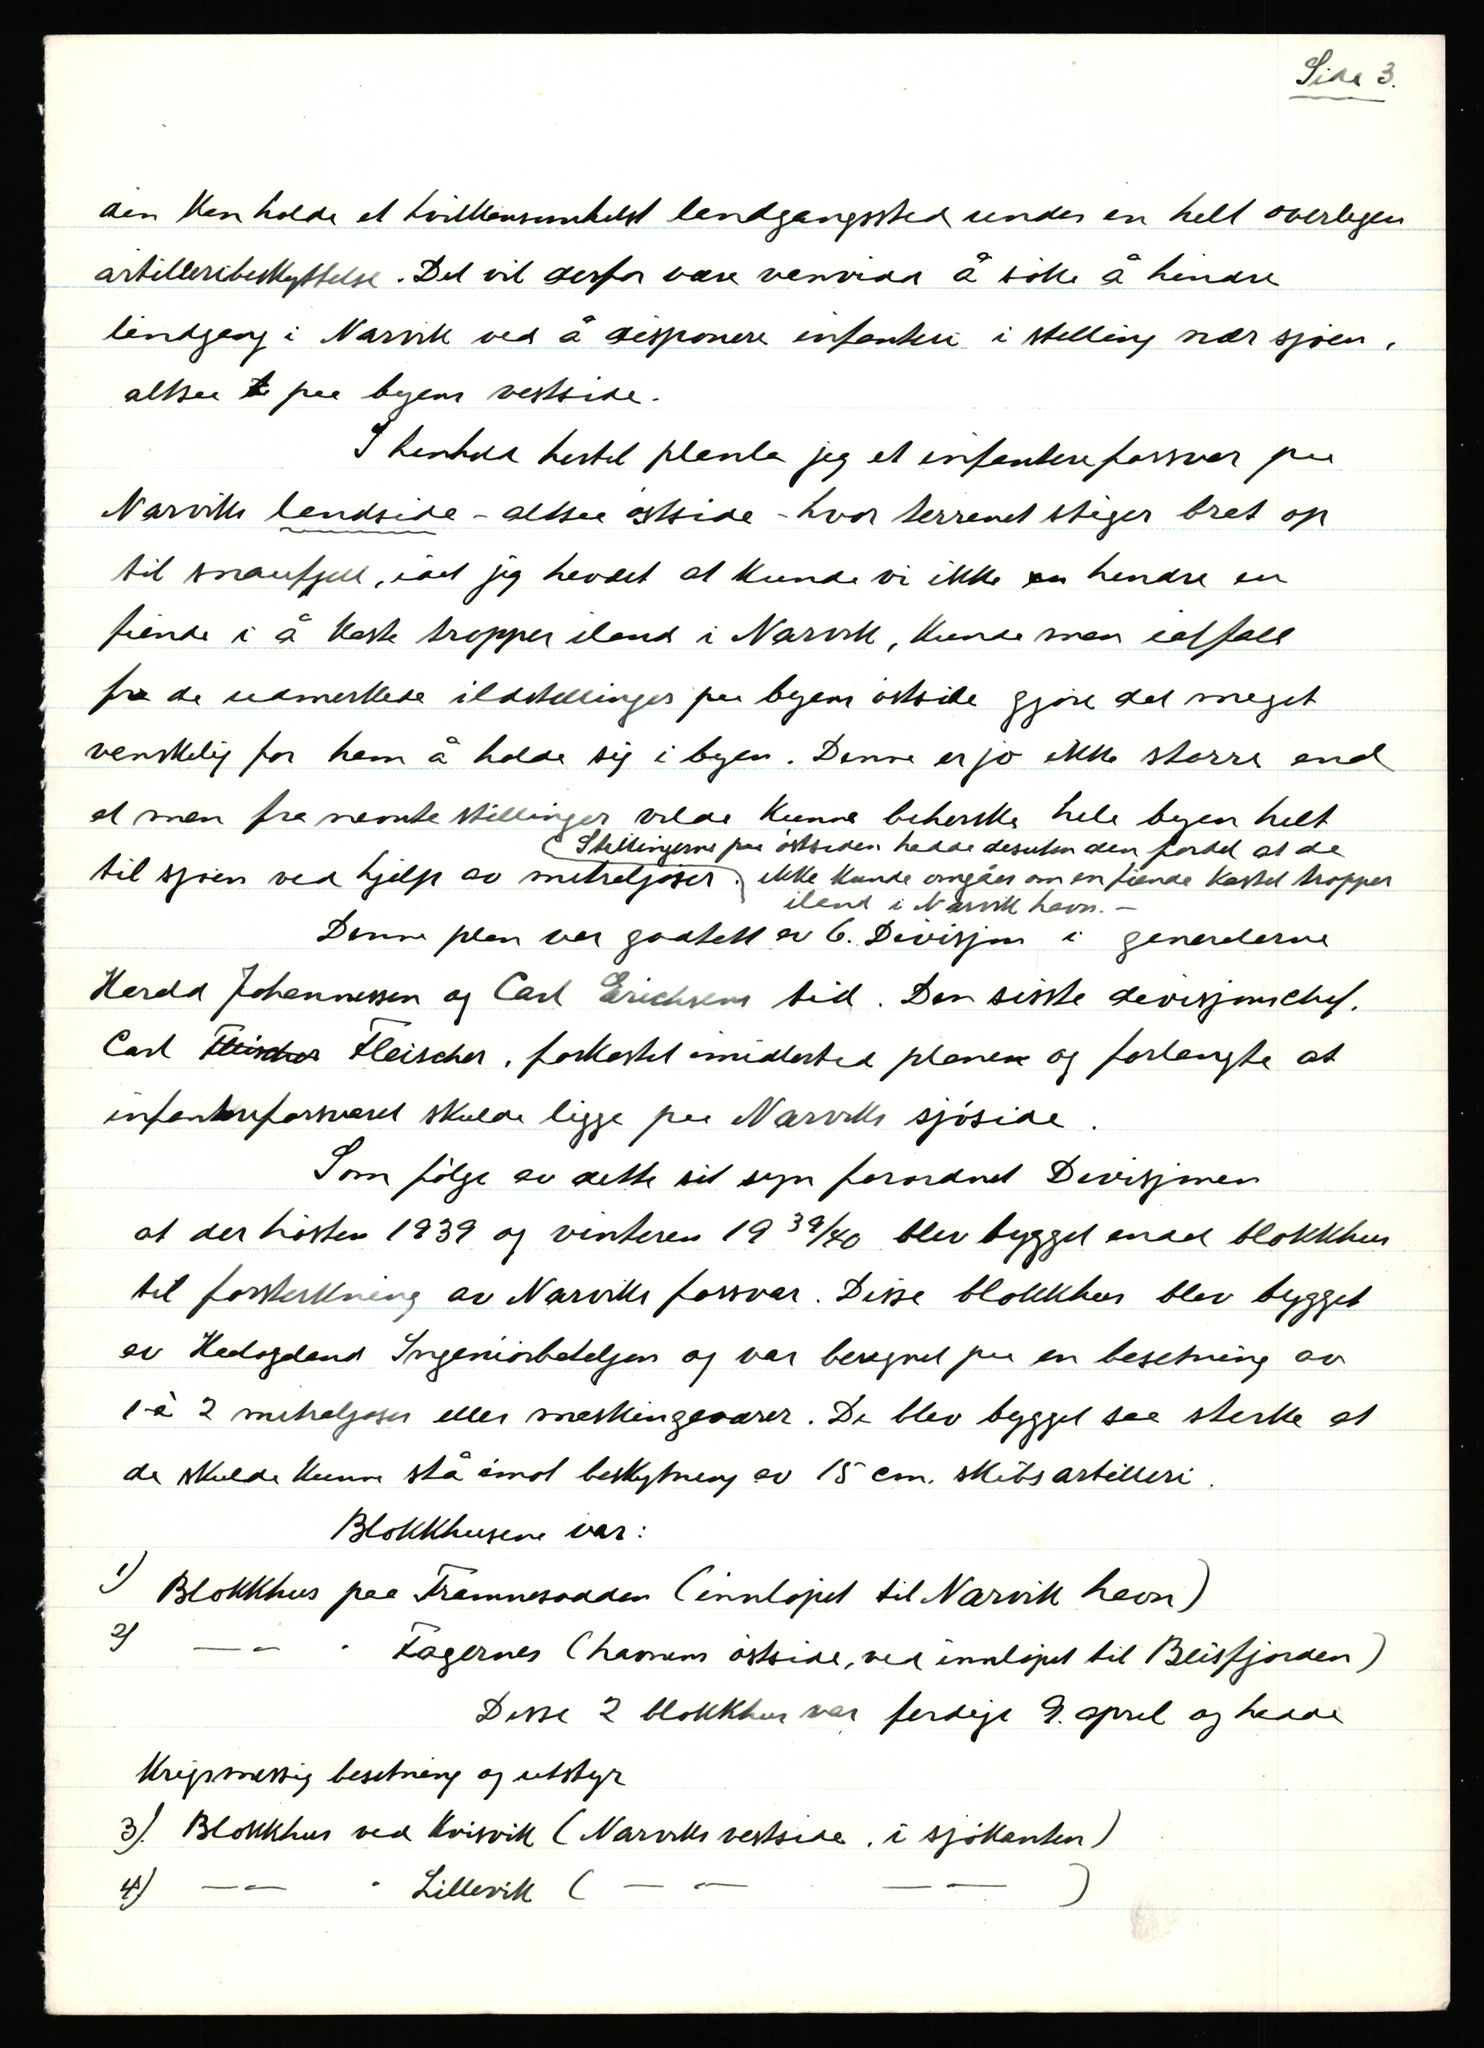 Side 3.
den kan holde et hvilkensomhelst landgangssted under en helt overlegen
artilleribeskyttelse. Det vil derfor være vanvidd å söke å hindre
landgang i Narvik ved å disponere infanteri i stilling nær sjöen,
altsaa paa byens vestside.
I henhold hertil planla jeg et infanteriforsvar paa
Narviks landside - altsaa östside - hvor terrenet stiger bret op
til snaufjell, idet jeg hevdet at kunde vi ikke hindre en
fiende i å kaste tropper iland i Narvik, kunde man ialfall
fra de udmerkede ildstillinger paa byens östside gjöre det meget
vanskelig for ham å holde sig i byen. Denne er jo ikke större end
at man fra nevnte stillinger vilde kunne beherske hele byen helt
til sjöen ved hjelp av mitraljöser. (Stillingerne paa östsiden hadde desuten den fordel at de
ikke kunde omgåes om en fiende kastet tropper
iland i Narvik havn. -
Denne plan var godtatt av 6. Divisjon i generalerne
Harald Johannessen og Carl Erichsens tid. Den sisste divisjonschef,
Carl Fleischer Fleischer, forkastet imidlertid planen og forlangte at
infanteriforsvaret skulde ligge paa Narviks sjöside.
Som fölge av dette sit syn forordnet Divisjonen
at der hösten 1939 og vinteren 19 39/40 blev bygget endel blokkhus
til forsterkning av Narviks forsvar. Disse blokkhus blev bygget
av Hålogaland Ingeniörbataljon og var beregnet paa en besetning av
1 à 2 mitraljöser eller maskingeværer. De blev bygget saa sterke at
de skulde kunne stå imot beskytning av 15 cm. skibsartilleri.
Blokkhusene var:
1) Blokkhus paa Framnesodden (innlöpet til Narvik havn)
2) — - " Fagernes (havnens östside, ved innlöpet til Beisfjorden)
Disse 2 blokkhus var ferdige 9. april og hadde
krigsmessig besetning og utstyr
3). Blokkhus ved Kvisvik (Narviks vestside, i sjökanten)
4) — - " Lillevik ( — - — — - — )